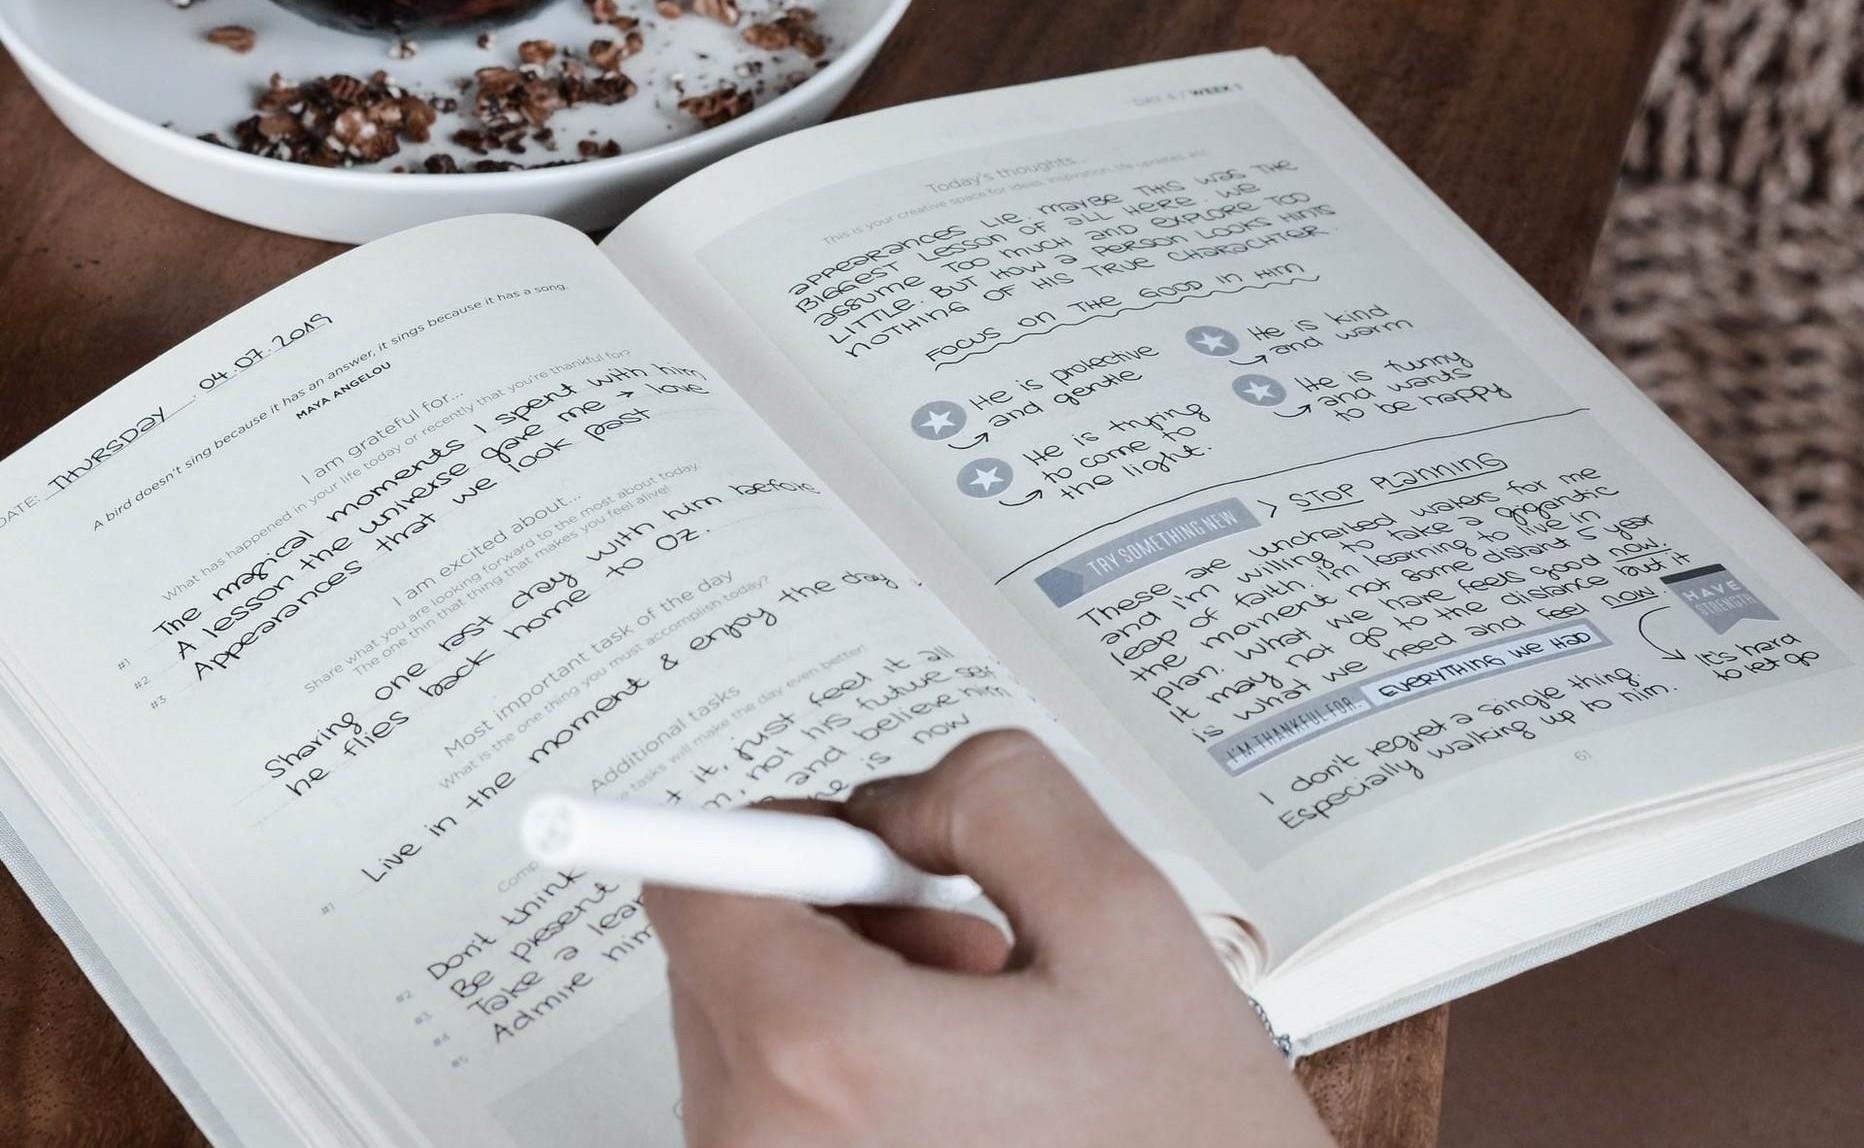 DATE: THURSDAY 04.07.2019
A bird doesn't sing because it has an answer, it sings because it has a song.
MAYA ANGELOU
I am grateful for...
What has happened in your life today or recently that you're thankful for?
#1 The magical moments I spent with him
#2 A lesson the universe gave me → love
#3 Appearances that we look past
I am excited about...
Share what you are looking forward to the most about today.
The one thing that makes you feel alive!
Sharing one last day with him before
he flies back home to Oz.
Most important task of the day
What is the one thing you must accomplish today?
#1 Live in the moment & enjoy the day
Additional tasks
tasks will make the day even better!
#2 Don't think it, just feel it all
#3 Be present not his future self
#4 Take a and believe him
#5 Admire him is now
DAY 4 / WEEK 1
Today's thoughts...
This is your creative space for ideas, inspiration, life updates, etc.
APPEARANCES LIE. MAYBE THIS WAS THE
BIGGEST LESSON OF ALL HERE. WE
ASSUME TOO MUCH AND EXPLORE TOO
LITTLE. BUT HOW A PERSON LOOKS HINTS
NOTHING OF HIS TRUE CHARACHTER.
FOCUS ON THE GOOD IN HIM
He is protective
and gentle
He is kind
and warm
He is trying
to come to
the light.
He is funny
and wants
to be happy
TRY SOMETHING NEW > STOP PLANNING
These are uncharted waters for me
and I'm willing to take a gigantic
leap of faith. I'm learning to live in
the moment not some distant 5 year
plan. What we have feels good now.
It may not go to the distance but it
is what we need and feel now.
HAVE
STRENGTH
It's hard
to let go
I'M THANKFUL FOR: EVERYTHING WE HAD
I don't regret a single thing.
Especially walking up to him.
61